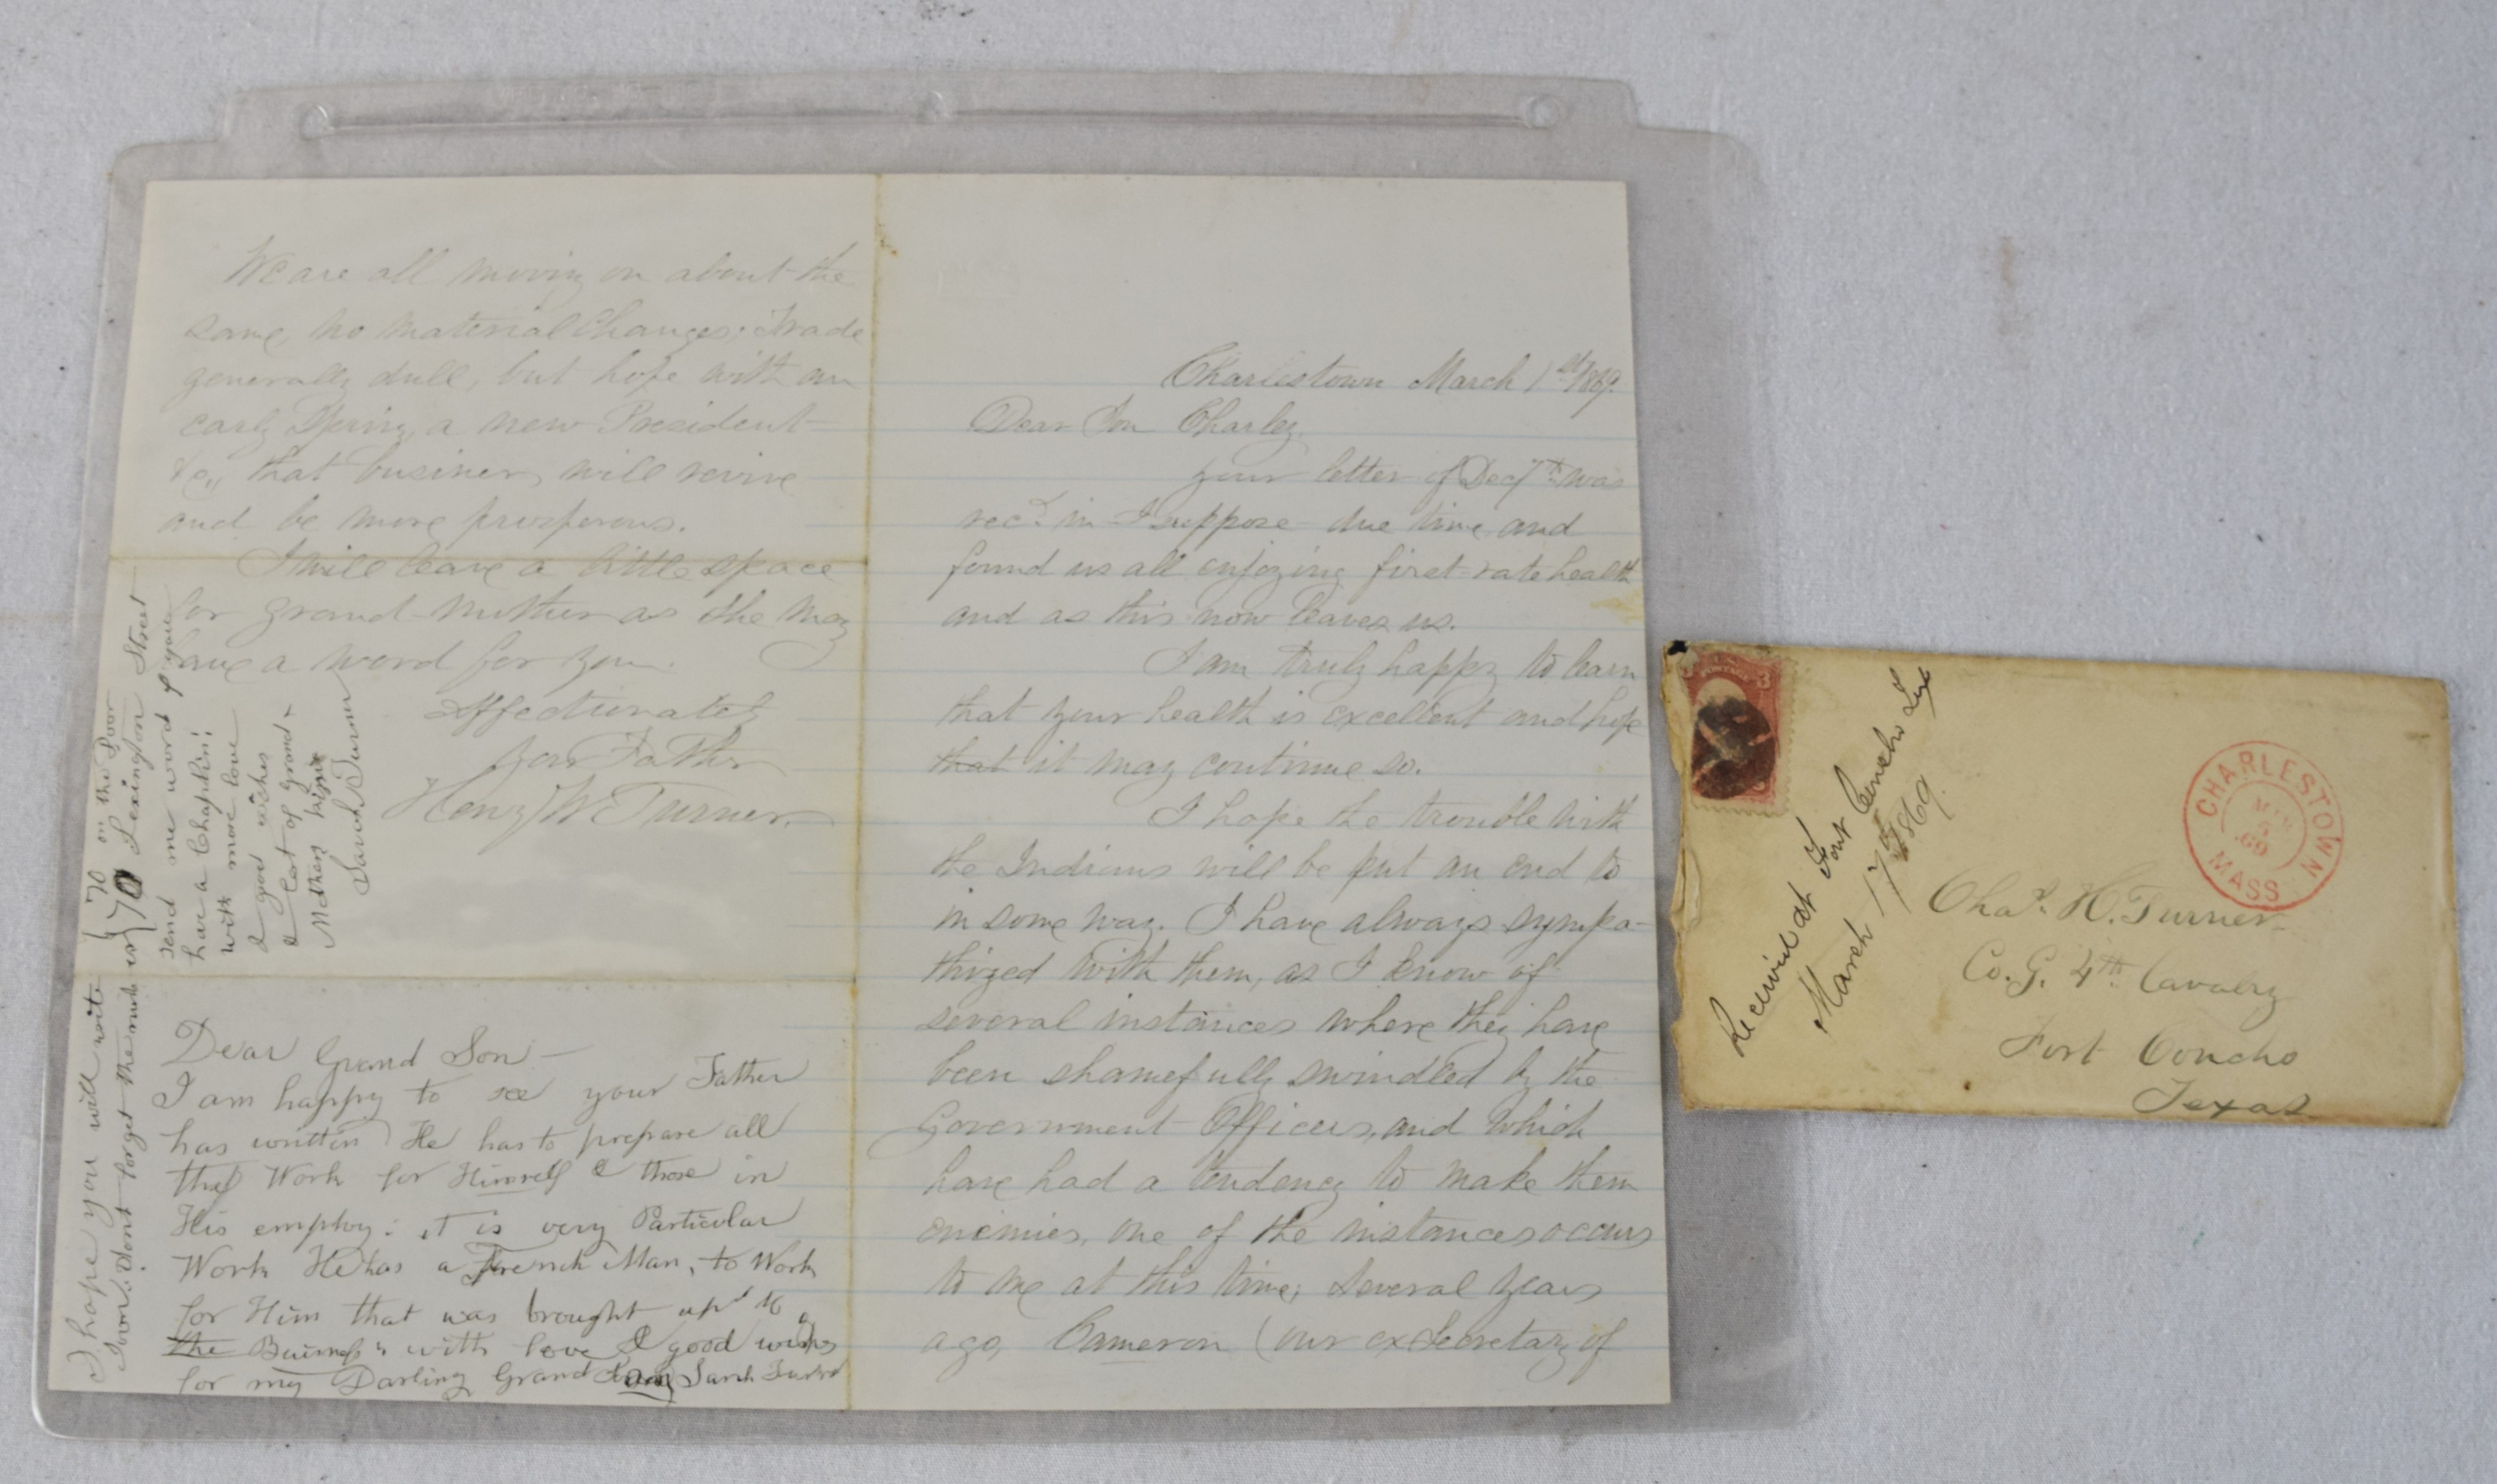 Charlestown March 1st 1869.
Dear Son Charley
your letter of Dec 7th was
recd in I suppose due time, and
found us all enjoying first rate health
and as this now leaves us.
I am truly happy to learn
that your health is excellent and hope
that it may continue so.
I hope the trouble with
the Indians will be put an end to
in some way. I have always sympa-
thized with them, as I know of
several instances where they have
been shamefully swindled by the
Government Officers, and which
have had a tendency to make them
enemies, one of the instances occurs
to me at this time; several years
ago, Cameron (our ex Secretary of
We are all moving on about the
same, no material changes; Trade
generally dull, but hope with an
early Spring, a new President
&c,, that business will revive
and be more prosperous.
I will leave a little space
for grand-mother as she may
have a word for you.
Affectionately
your Father
Henry W Turner.
Dear Grand Son —
I am happy to see your Father
has written He has to prepare all
the Work for Himself & those in
His employ: it is very Particular
Work He has a French Man, to Work
for Him that was brought up to
the Business with love & good wishes
for my Darling Grand Son Sarah Turner
I hope you will write
soon: dont forget the
170 on the Door
is 170 Lexington Street
send me word if you
have a Chaplin:
with more love
& good wishes
Mother
Sarah Turner
Received at Fort Concho Tex
March 17th 1869.
CHARLESTOWN
MAR
69
MASS.
3
Chas. H. Turner
Co. G. 4th Cavalry
Fort Concho
Texas